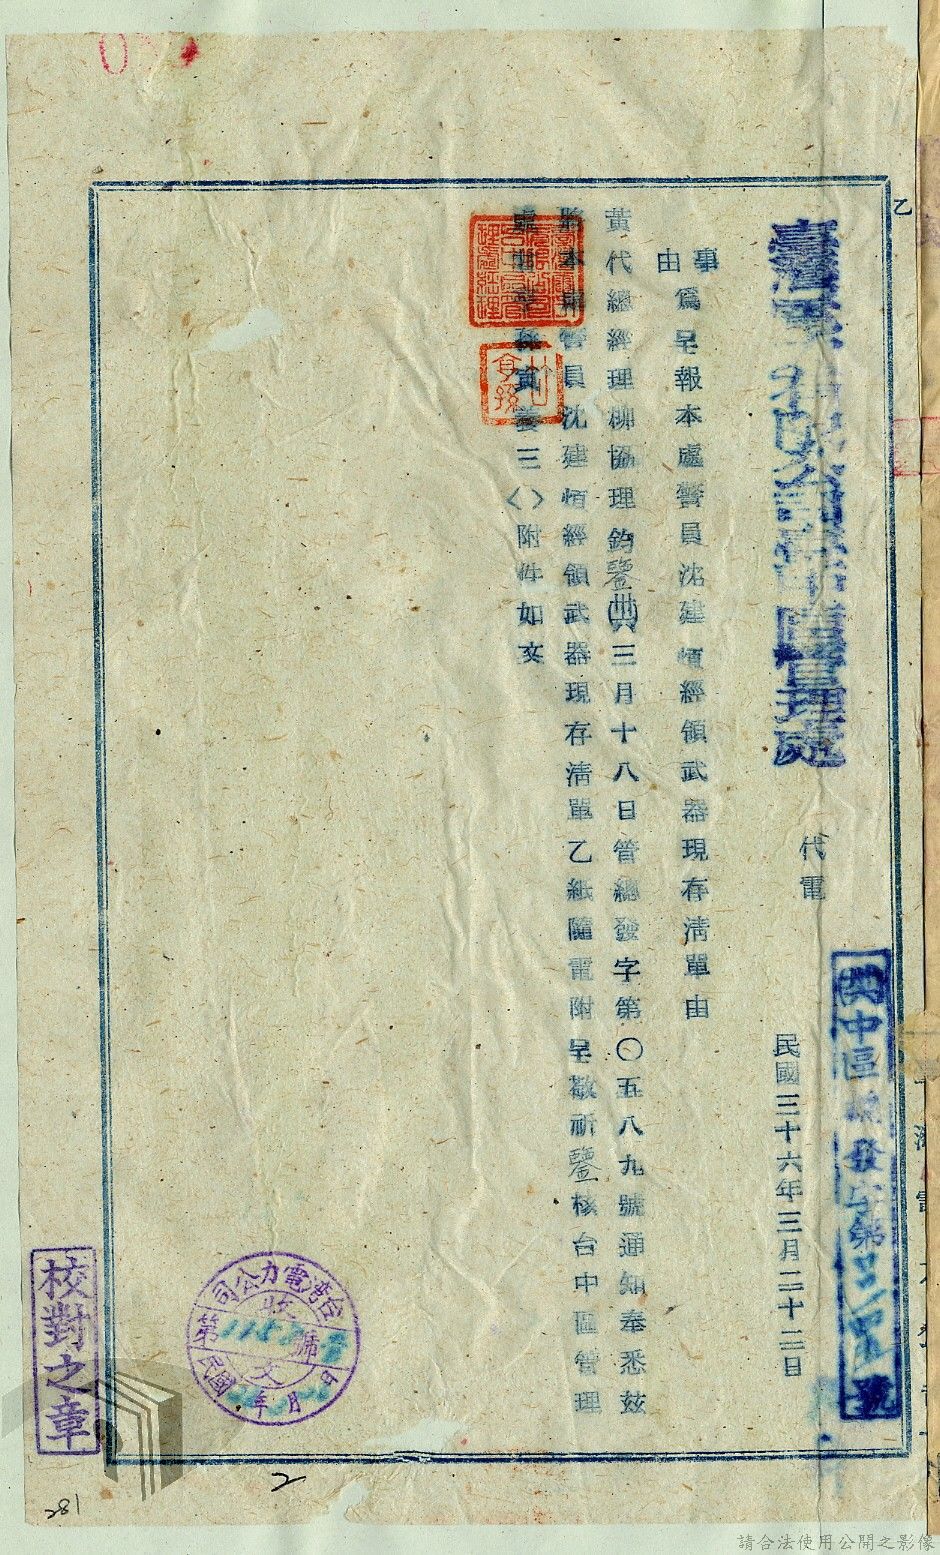 乙
臺灣電力有限公司台中區管理處
代電
民國三十六年三月二十二日
中區總發字第號
事由
為呈報本處警員沈建恆經領武器現存清單由
黃代總經理柳協理鈞鑒(卅六)三月十八日管總發字第〇五八九號通知奉悉茲
將本處警員沈建恆經領武器現存清單乙紙隨電附呈敬祈鑒核台中區管理
處三〈〉附件如文
台灣電力公司
收文
第號
民國年月日
校對之章
2
281
請合法使用公開之影像